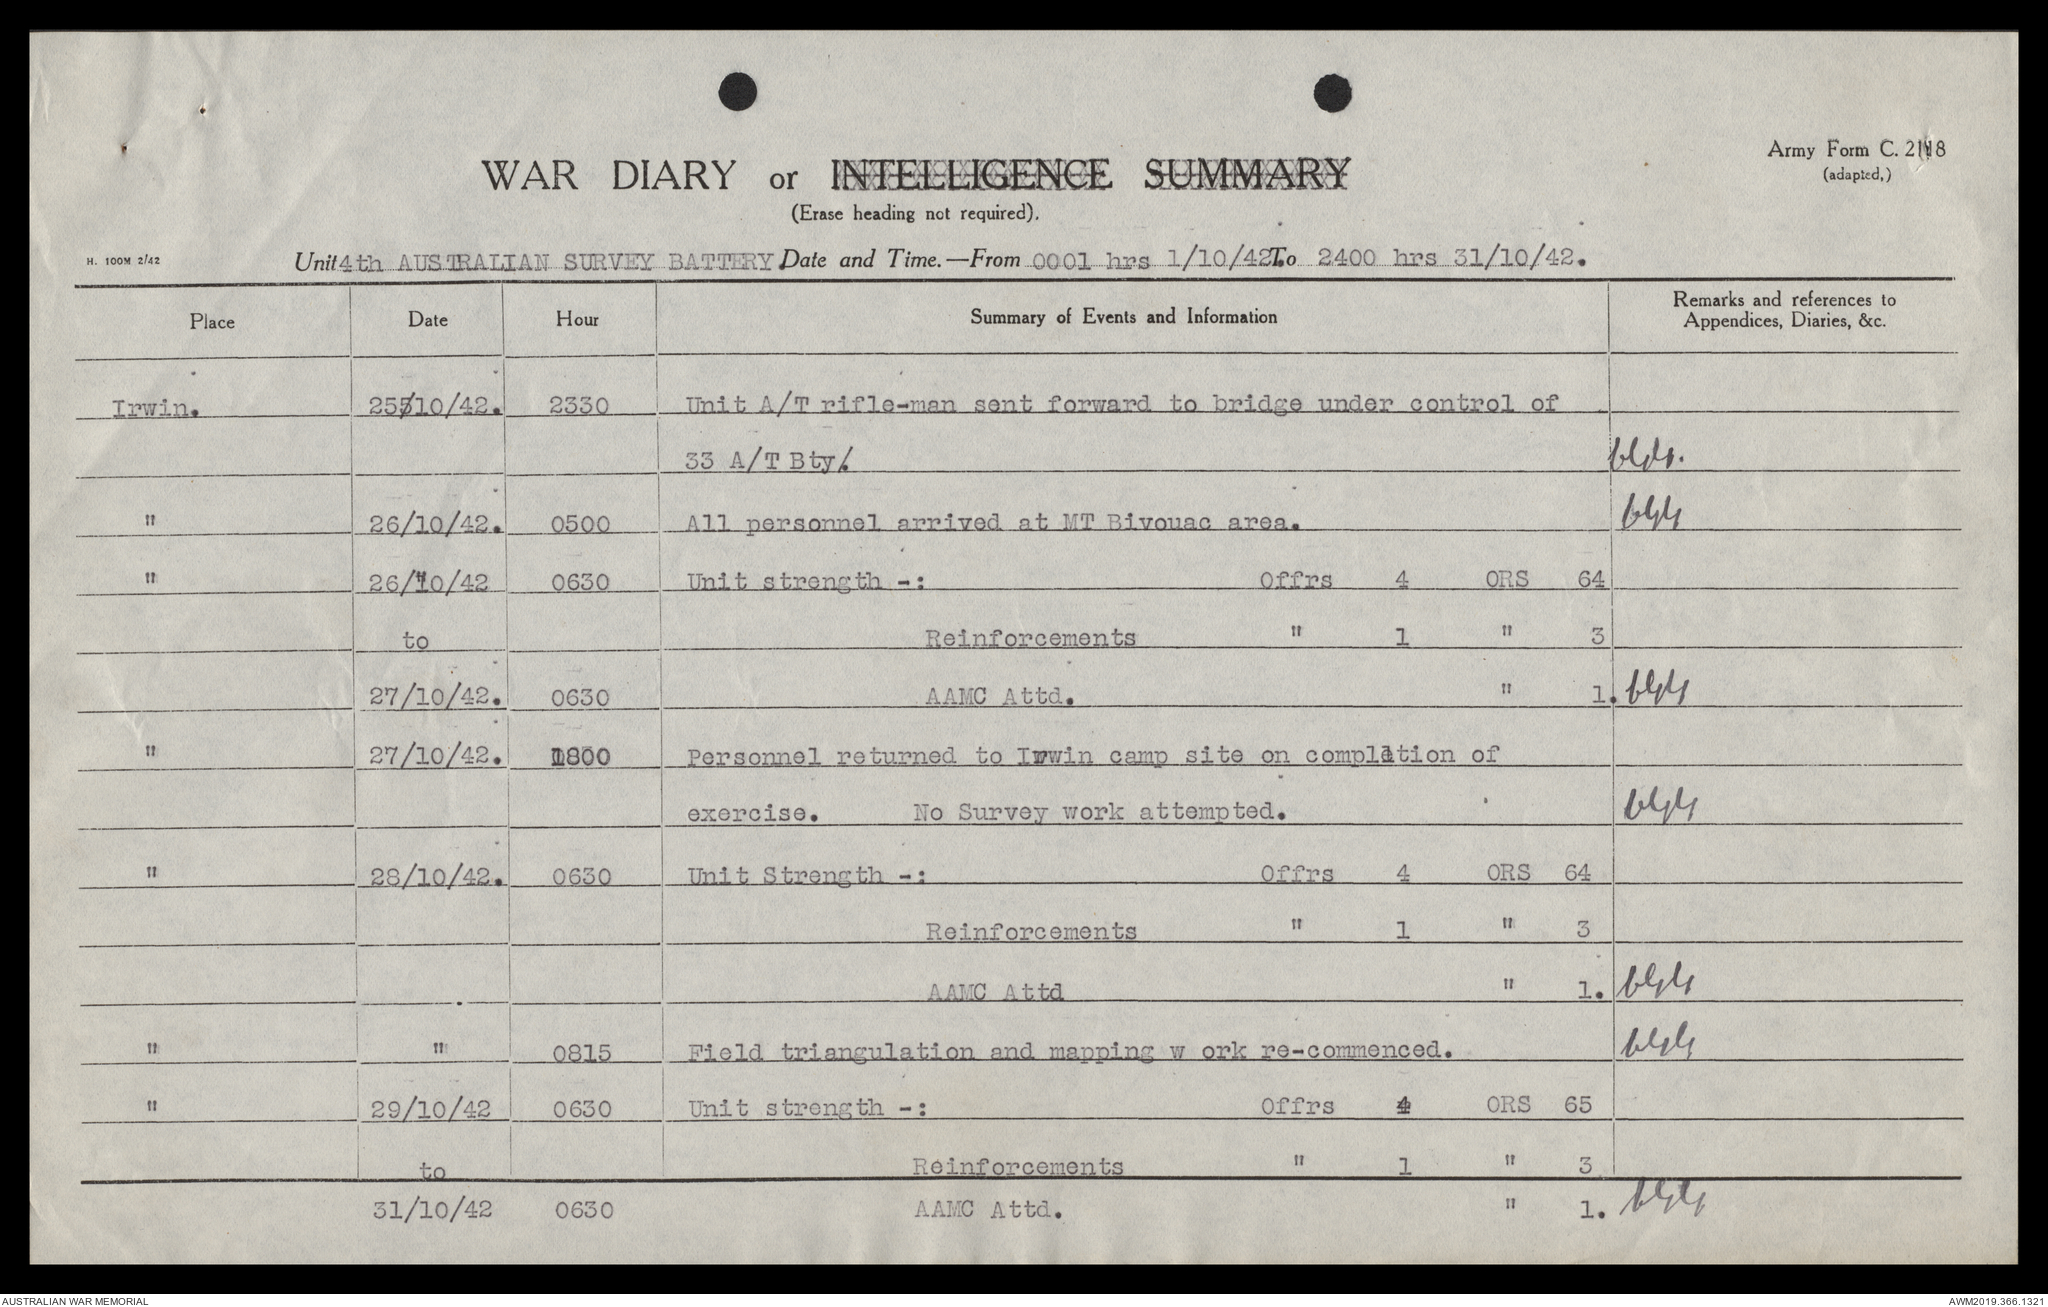 Army Form C. 2118
(adapted,)
WAR DIARY or INTELLIGENCE SUMMARY
(Erase heading not required).
H. 100M 2/42
Unit 4th AUSTRALIAN SURVEY BATTERY. Date and Time.—From 0001 hrs 1/10/42. To 2400 hrs 31/10/42.
Place Date Hour Summary of Events and Information Remarks and references to
Appendices, Diaries, &c.
Irwin. 25/10/42. 2330 Unit A/T rifle-man sent forward to bridge under control of
33 A/T Bty.
" 26/10/42. 0500 All personnel arrived at MT Bivouac area.
" 26/10/42 0630 Unit strength -: Offrs 4 ORS 64
to Reinforcements " 1 " 3
27/10/42. 0630 AAMC Attd. " 1.
" 27/10/42. 1800 Personnel returned to Irwin camp site on completion of
exercise. No Survey work attempted.
" 28/10/42. 0630 Unit Strength -: Offrs 4 ORS 64
Reinforcements " 1 " 3
AAMC Attd " 1.
" " 0815 Field triangulation and mapping w ork re-commenced.
" 29/10/42 0630 Unit strength -: Offrs 4 ORS 65
to Reinforcements " 1 " 3
31/10/42 0630 AAMC Attd. " 1.
AUSTRALIAN WAR MEMORIAL AWM2019.366.1321